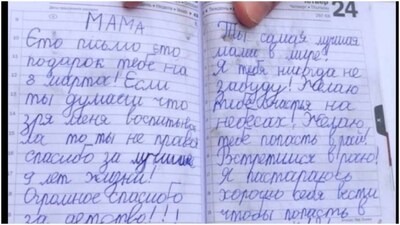 МАМА
Єто письмо єто
подарок тебе на
8 марта! Если
ты думаеш что
зря меня воспитыва
ла то ты не права
спасибо за лучшие
9 лет жизни!
Огромное спасибо
за детство!!!
24
Ты самая лучшая
мама в мире!
Я тебя никогда не
забуду! Желаю
тибе счастья на
небесах! Желаю
тебе попасть в рай!
Встретимся в раю!
Я пастараюсь
хорошо себя вести
чтобы попасть в